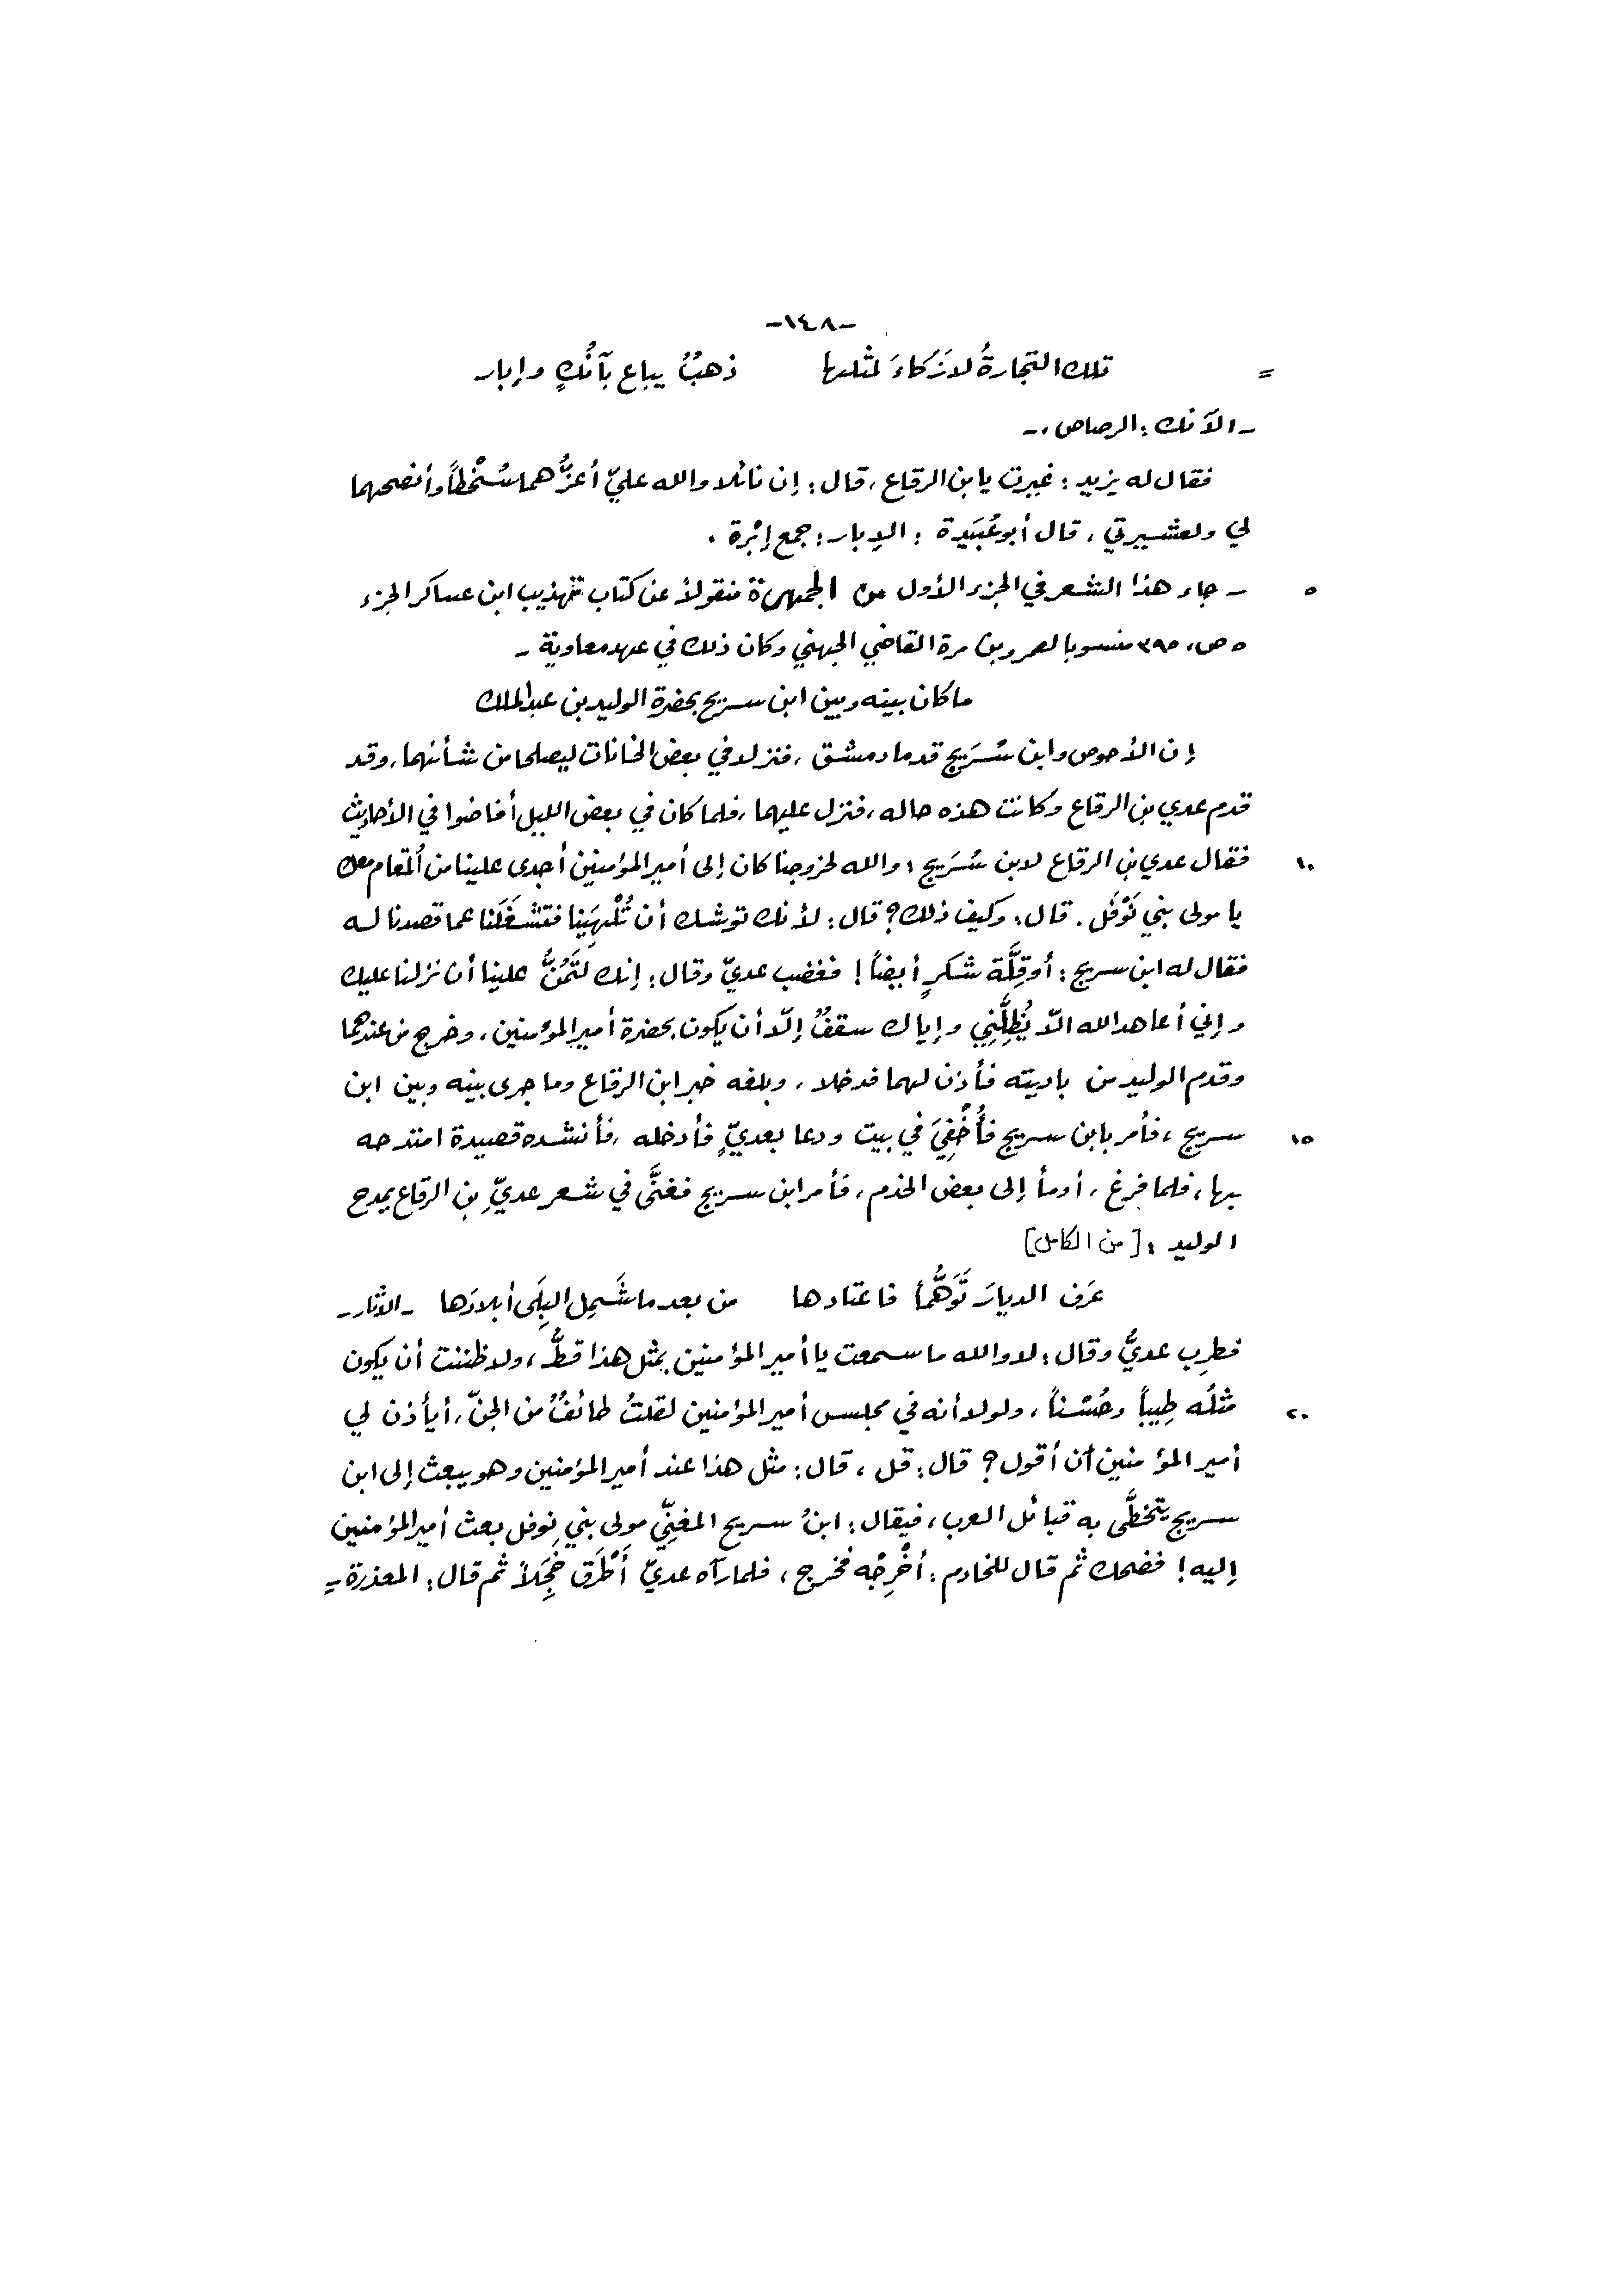 -١٤٨-
= تلك التجارةُ لا زَكاءَ لمثلها ذهبٌ يباع بآنُكٍ وإبار
- الآنك: الرصاص، -
فقال له يزيد: غيرت يا بن الرقاع، قال: إن نائلا والله عليّ أعزُّهما سُخْطاً وأنصحهما
لي ولعشيرتي، قال أبو عُبَيدة: الإبار: جمع إبْرة.
٥ - جاء هذا الشعر في الجزء الأول من الجمهرة منقولاً عن كتاب تهذيب ابن عساكر الجزء
٥ ص، ٣٩٥ منسوبا لعمرو بن مرة القاضي الجهني وكان ذلك في عهد معاوية -
ما كان بينه وبين ابن سريج بحضرة الوليد بن عبد الملك
إن الأحوص وابن سُرَيج قدما دمشق، فنزلا في بعض الخانات ليصلحا من شأنهما، وقد
قدم عدي بن الرقاع وكانت هذه حاله، فنزل عليهما، فلما كان في بعض الليل أفاضوا في الأحاديث
١٠ فقال عدي بن الرقاع لابن سُرَيج: والله لخروجنا كان إلى أمير المؤمنين أجدى علينا من المُقام معك
يا مولى بني نَوْفَل. قال: وكيف ذلك؟ قال: لأنك توشك أن تُلْهِيَنا فتشغَلَنا عما قصدنا له
فقال له ابن سريج: أوقِلَّة شكرٍ أيضاً! فغضب عديّ وقال: إنك لتَمُنُّ علينا أن نزلنا عليك
وإني أعاهد الله ألّا يُظِلَّنِي وإياك سقفٌ إلّا أن يكون بحضرة أمير المؤمنين، وخرج من عندهما
وقدم الوليد من باديته فأذن لهما فدخلا، وبلغه خبر ابن الرقاع وما جرى بينه وبين ابن
١٥ سريج، فأمر بابن سريج فأُخْفِيَ في بيت ودعا بعديٍّ فأدخله، فأنشده قصيدة امتدحه
بها، فلما فرغ، أومأ إلى بعض الخدم، فأمر ابن سريج فغنَّى في شعر عديِّ بن الرقاع يمدح
الوليد: [من الكامل]
عَرَف الديارَ تَوَهُّماً فاعتادها من بعد ما شَمِل البِلَى أبلادَها - الآثار -
فطرِب عديٌّ وقال: لا والله ما سمعت يا أمير المؤمنين بمثل هذا قطُّ، ولا ظننت أن يكون
٢٠ مثلُه طِيباً وحُسْناً، ولولا أنه في مجلس أمير المؤمنين لقلتُ طائفٌ من الجنّ، أيأذن لي
أمير المؤمنين أن أقول؟ قال: قل، قال: مثل هذا عند أمير المؤمنين وهو يبعث إلى ابن
سريج يتخطَّى به قبائل العرب، فيقال: ابنُ سريج المغنِّي مولى بني نوفل بعث أمير المؤمنين
إليه! فضحك ثم قال للخادم: أخْرِجْه فخرج، فلما رآه عديّ أَطْرَق خَجِلاً ثم قال: المعذرة =